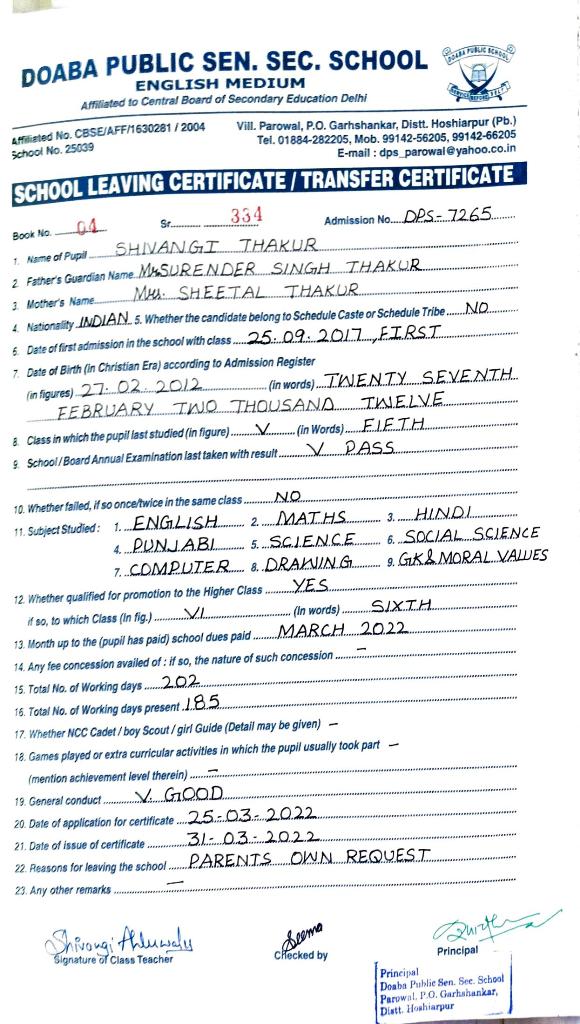 DOABA PUBLIC SCHOOL
SERVICE BEFORE SELF
DOABA PUBLIC SEN. SEC. SCHOOL
ENGLISH MEDIUM
Affiliated to Central Board of Secondary Education Delhi
Affiliated No. CBSE/AFF/1630281 / 2004
School No. 25039
Vill. Parowal, P.O. Garhshankar, Distt. Hoshiarpur (Pb.)
Tel. 01884-282205, Mob. 99142-56205, 99142-66205
E-mail : dps_parowal@yahoo.co.in
SCHOOL LEAVING CERTIFICATE / TRANSFER CERTIFICATE
Book No. 04 Sr. 334 Admission No. DPS-7265
1. Name of Pupil SHIVANGI THAKUR
2. Father's Guardian Name Mr. SURENDER SINGH THAKUR
3. Mother's Name Mrs. SHEETAL THAKUR
4. Nationality INDIAN 5. Whether the candidate belong to Schedule Caste or Schedule Tribe NO
6. Date of first admission in the school with class 25.09.2017, FIRST
7. Date of Birth (in Christian Era) according to Admission Register
(in figures) 27.02.2012 (in words) TWENTY SEVENTH
FEBRUARY TWO THOUSAND TWELVE
8. Class in which the pupil last studied (in figure) V (in Words) FIFTH
9. School / Board Annual Examination last taken with result V PASS
10. Whether failed, if so once/twice in the same class NO
11. Subject Studied : 1. ENGLISH 2. MATHS 3. HINDI
4. PUNJABI 5. SCIENCE 6. SOCIAL SCIENCE
7. COMPUTER 8. DRAWING 9. GK & MORAL VALUES
12. Whether qualified for promotion to the Higher Class YES
if so, to which Class (In fig.) VI (In words) SIXTH
13. Month up to the (pupil has paid) school dues paid MARCH 2022
14. Any fee concession availed of : if so, the nature of such concession –
15. Total No. of Working days 202
16. Total No. of Working days present 185
17. Whether NCC Cadet / boy Scout / girl Guide (Detail may be given) –
18. Games played or extra curricular activities in which the pupil usually took part –
(mention achievement level therein) –
19. General conduct V. GOOD
20. Date of application for certificate 25-03-2022
21. Date of issue of certificate 31-03-2022
22. Reasons for leaving the school PARENTS OWN REQUEST
23. Any other remarks –
Shivangi Ahluwalia Seema
Signature of Class Teacher Checked by Principal
Principal
Doaba Public Sen. Sec. School
Parowal, P.O. Garhshankar,
Distt. Hoshiarpur